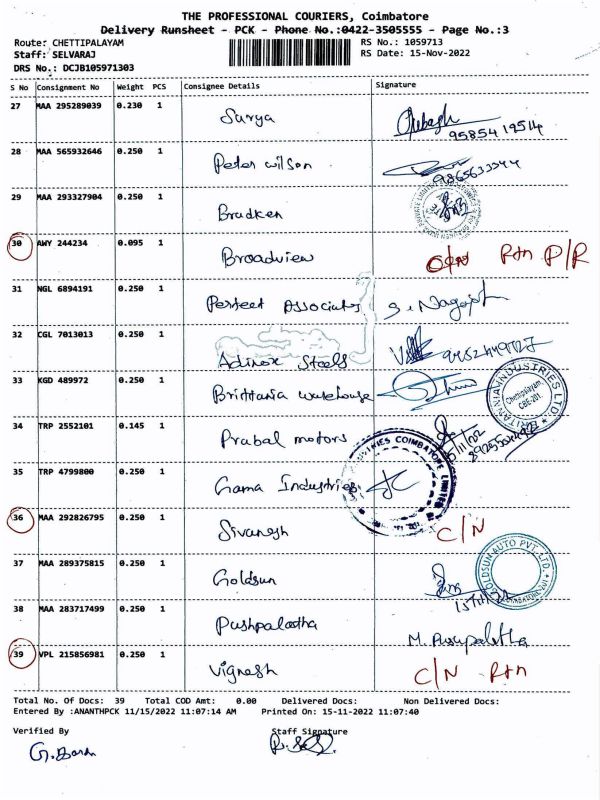 THE PROFESSIONAL COURIERS, Coimbatore
Delivery Runsheet - PCK - Phone No.:0422-3505555 - Page No.:3
Route: CHETTIPALAYAM RS No.: 1059713
Staff: SELVARAJ RS Date: 15-Nov-2022
DRS No.: DCJB105971303
S No Consignment No Weight PCS Consignee Details Signature
27 MAA 295289039 0.230 1 Surya
9585419514
28 MAA 565932646 0.250 1 Peter wilson
29 MAA 293327904 0.250 1 Bradken
30 AWY 244234 0.095 1 Broadview Rtn P/R
31 NGL 6894191 0.250 1 Perfect Associates S. Nagaraj
32 CGL 7013013 0.250 1 Adinox Steels
33 KGD 489972 0.250 1 Brittania warehouse
BRITANNIA INDUSTRIES LTD.
Chettipalayam,
CBE-201.
34 TRP 2552101 0.145 1 Prabal motors
15/11/22
35 TRP 4799800 0.250 1 Gama Industries
INDUSTRIES COIMBATORE LIMITED
36 MAA 292826795 0.250 1 Sivanesh C/N
37 MAA 289375815 0.250 1 Goldsun
GOLDSUN AUTO PVT. LTD.
15/11/22
38 MAA 283717499 0.250 1 Pushpalatha
39 VPL 215856981 0.250 1 Vignesh C/N Rtn
Total No. Of Docs: 39 Total COD Amt: 0.00 Delivered Docs: Non Delivered Docs:
Entered By :ANANTHPCK 11/15/2022 11:07:14 AM Printed On: 15-11-2022 11:07:40
Verified By Staff Signature